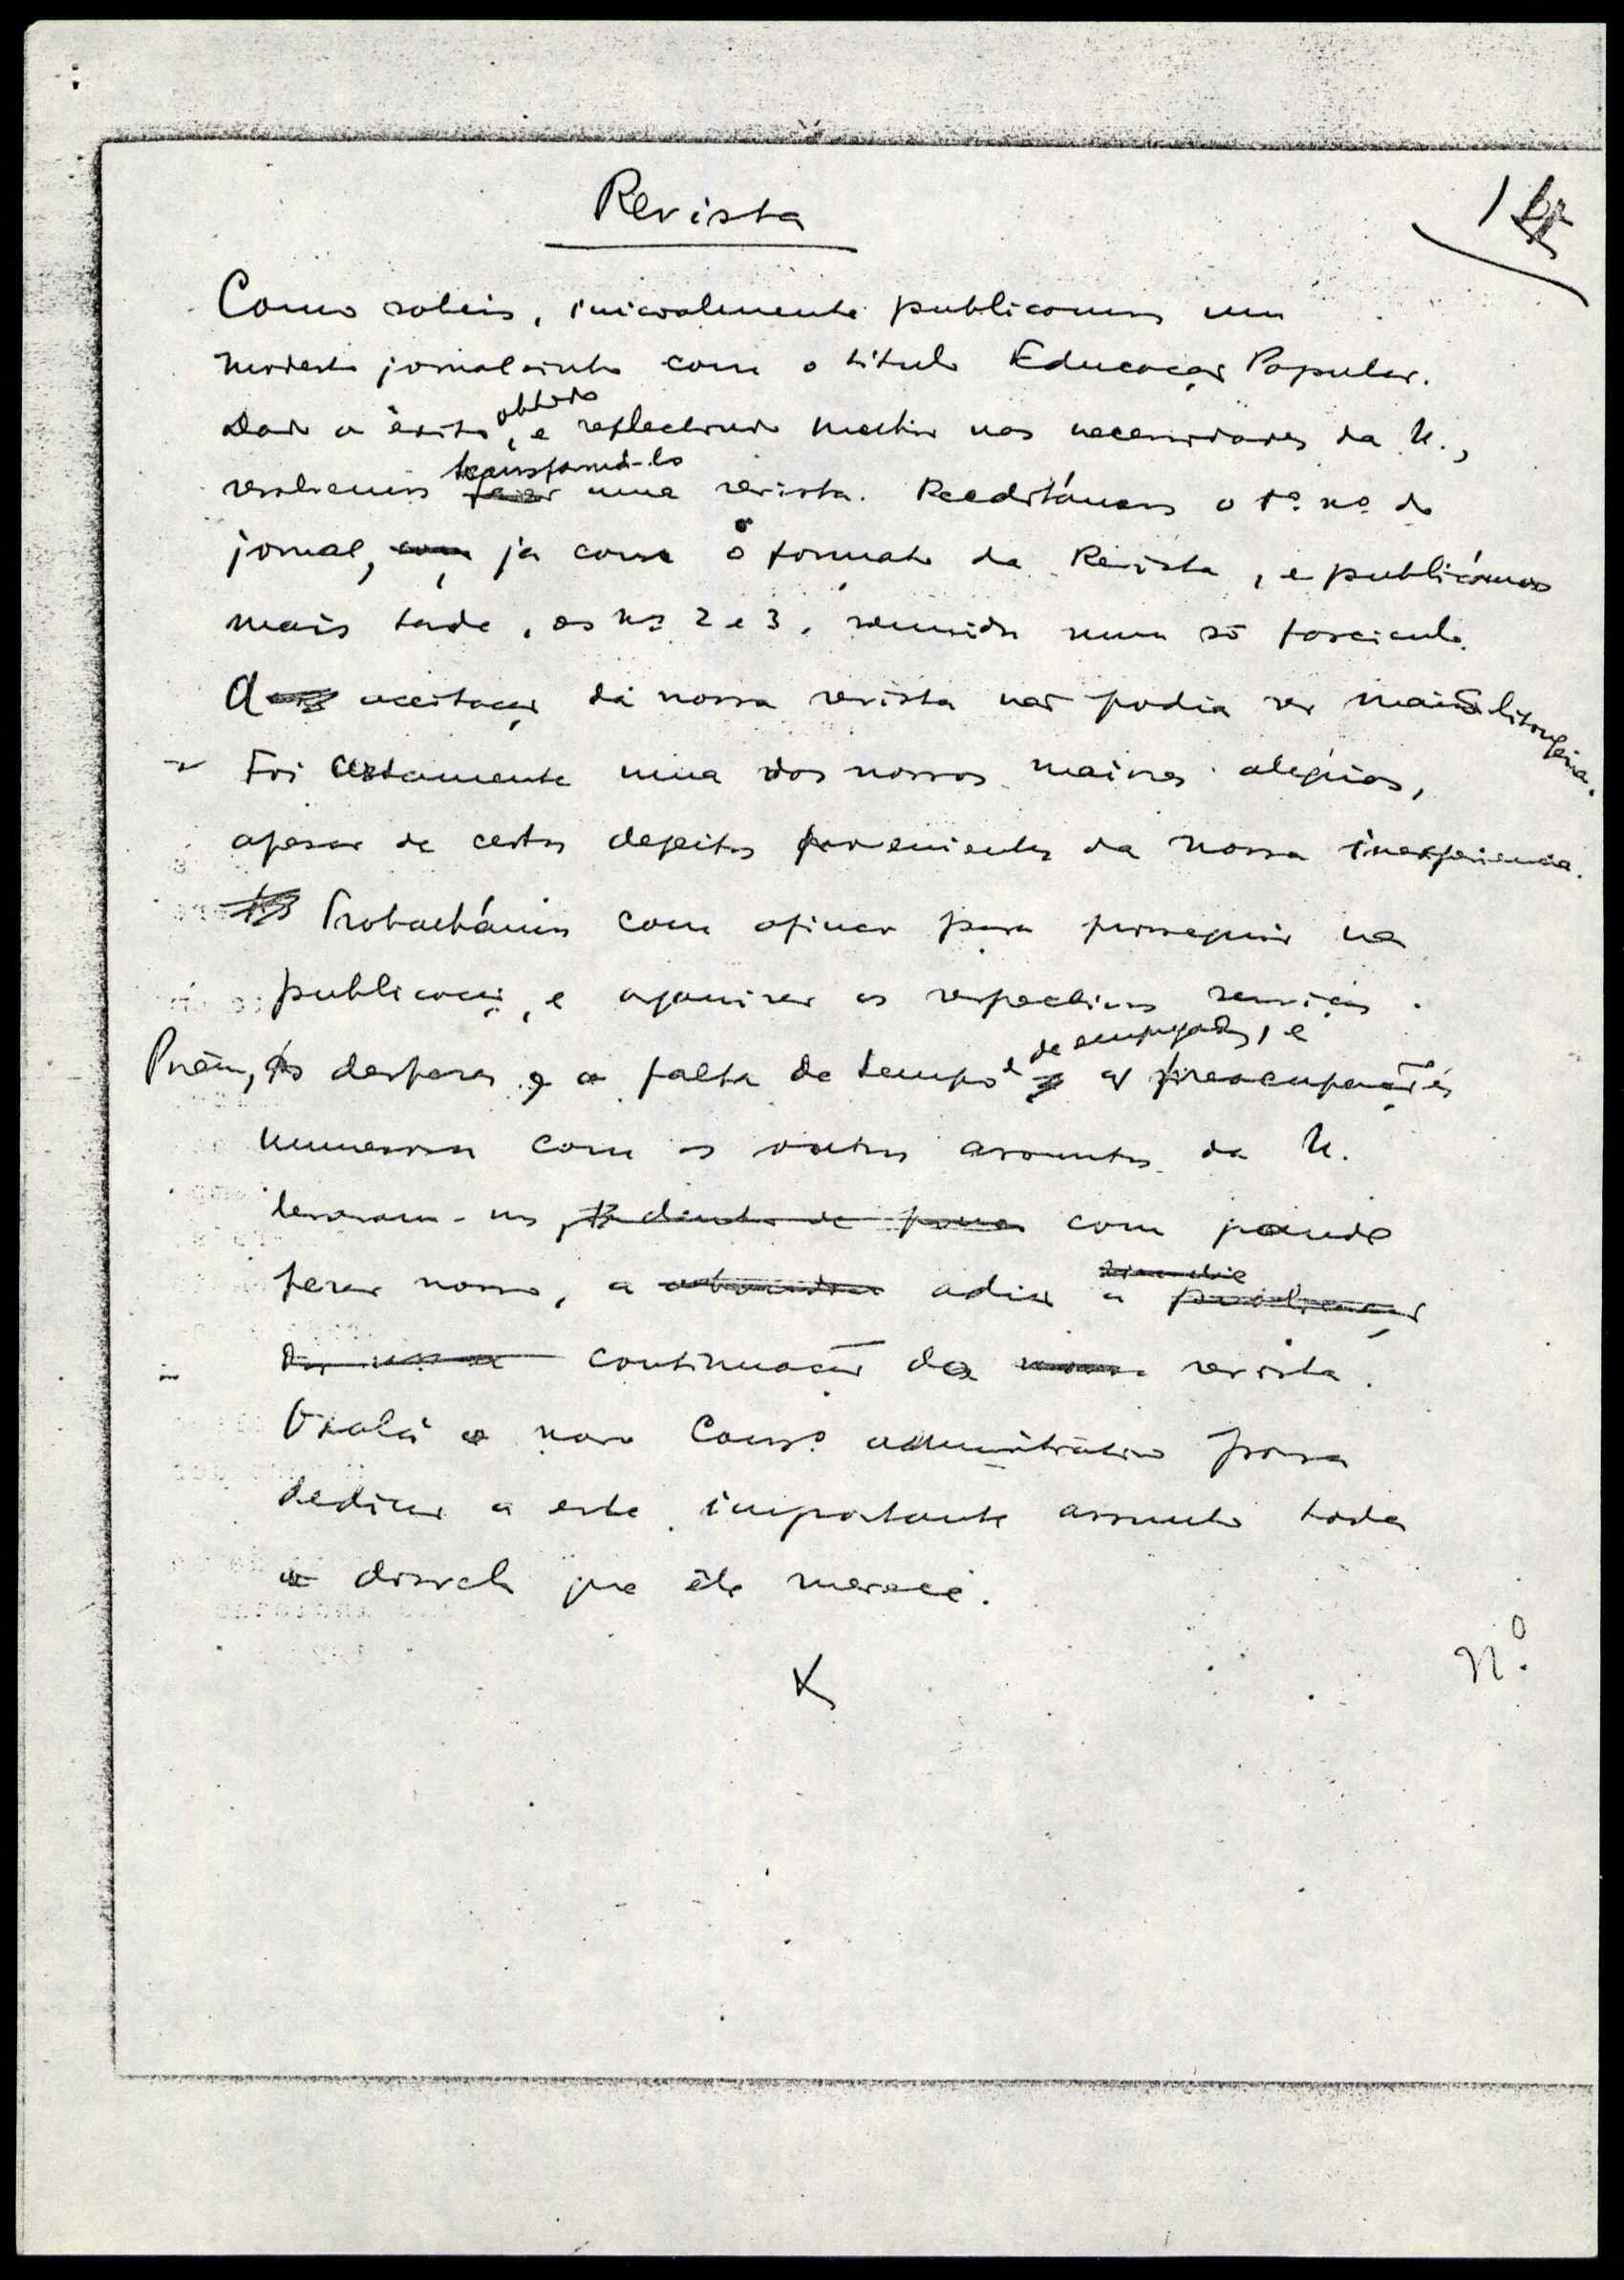 Revista
Como sabeis, inicialmente publicamos um
modesto jornalsinho com o titulo Educação Popular.
Dado o êxito obtido, e reflectindo melhor nas necessidades da U.,
resolvemos transformá-lo numa revista. Reeditámos o 1º. nº. do
jornal, já com o formato da Revista, e publicámos
mais tarde, os nºs 2 e 3, reunidos num só fasciculo.
A aceitação da nossa revista não podia ser mais lisongeira.
Foi certamente uma das nossas maiores alegrias,
apesar de certos defeitos provenientes da nossa inexperiencia.
Trabalhámos com afinco para proseguir na
publicação, e organizar os respectivos serviços.
Porêm, as despesas e a falta de tempo e de empregados, e as preocupações
numerosas com os outros assuntos da U.
levaram-nos, com grande
pezar nosso, a adiar a
continuação da revista.
Oxalá o novo Conso. administrativo possa
dedicar a este importante assunto toda
a que êle merece.
Nº